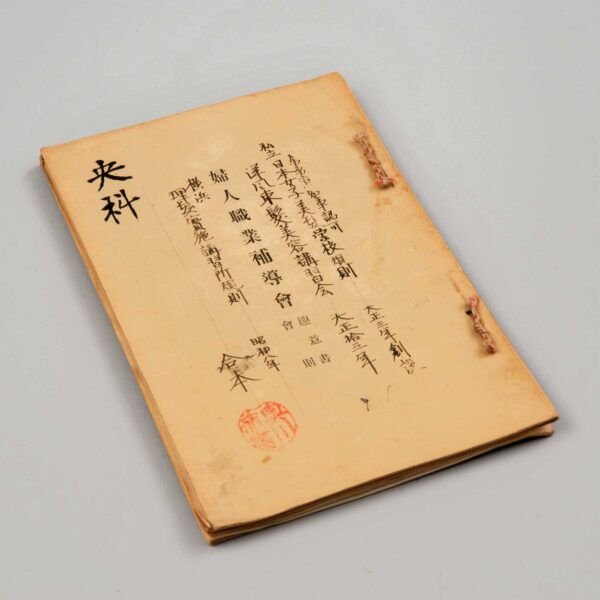 知事認可
私立日本女子美髪学校規則
大正三年創設
洋式束髪美容講習会
大正拾三年
婦人職業補導會
趣意書
會則
横浜
理髪實施講習所規則
昭和八年
合本
央科